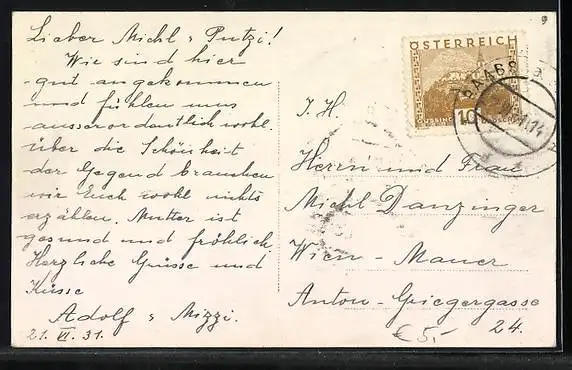 Lieber Michl & Putzi!
Wir sind hier
gut angekommen
und fühlen uns
ausserordentlich wohl.
Über die Schönheit
der Gegend brauchen
wir Euch wohl nichts
erzählen. Mutter ist
gesund und fröhlich.
Herzliche Grüsse und
Küsse
Adolf & Mizzi.
21. VI. 31.
ÖSTERREICH
10
I. H.
Herrn und Frau
Michl Danzinger
Wien - Mauer
Anton-Griegergasse
24.
€ 5,-